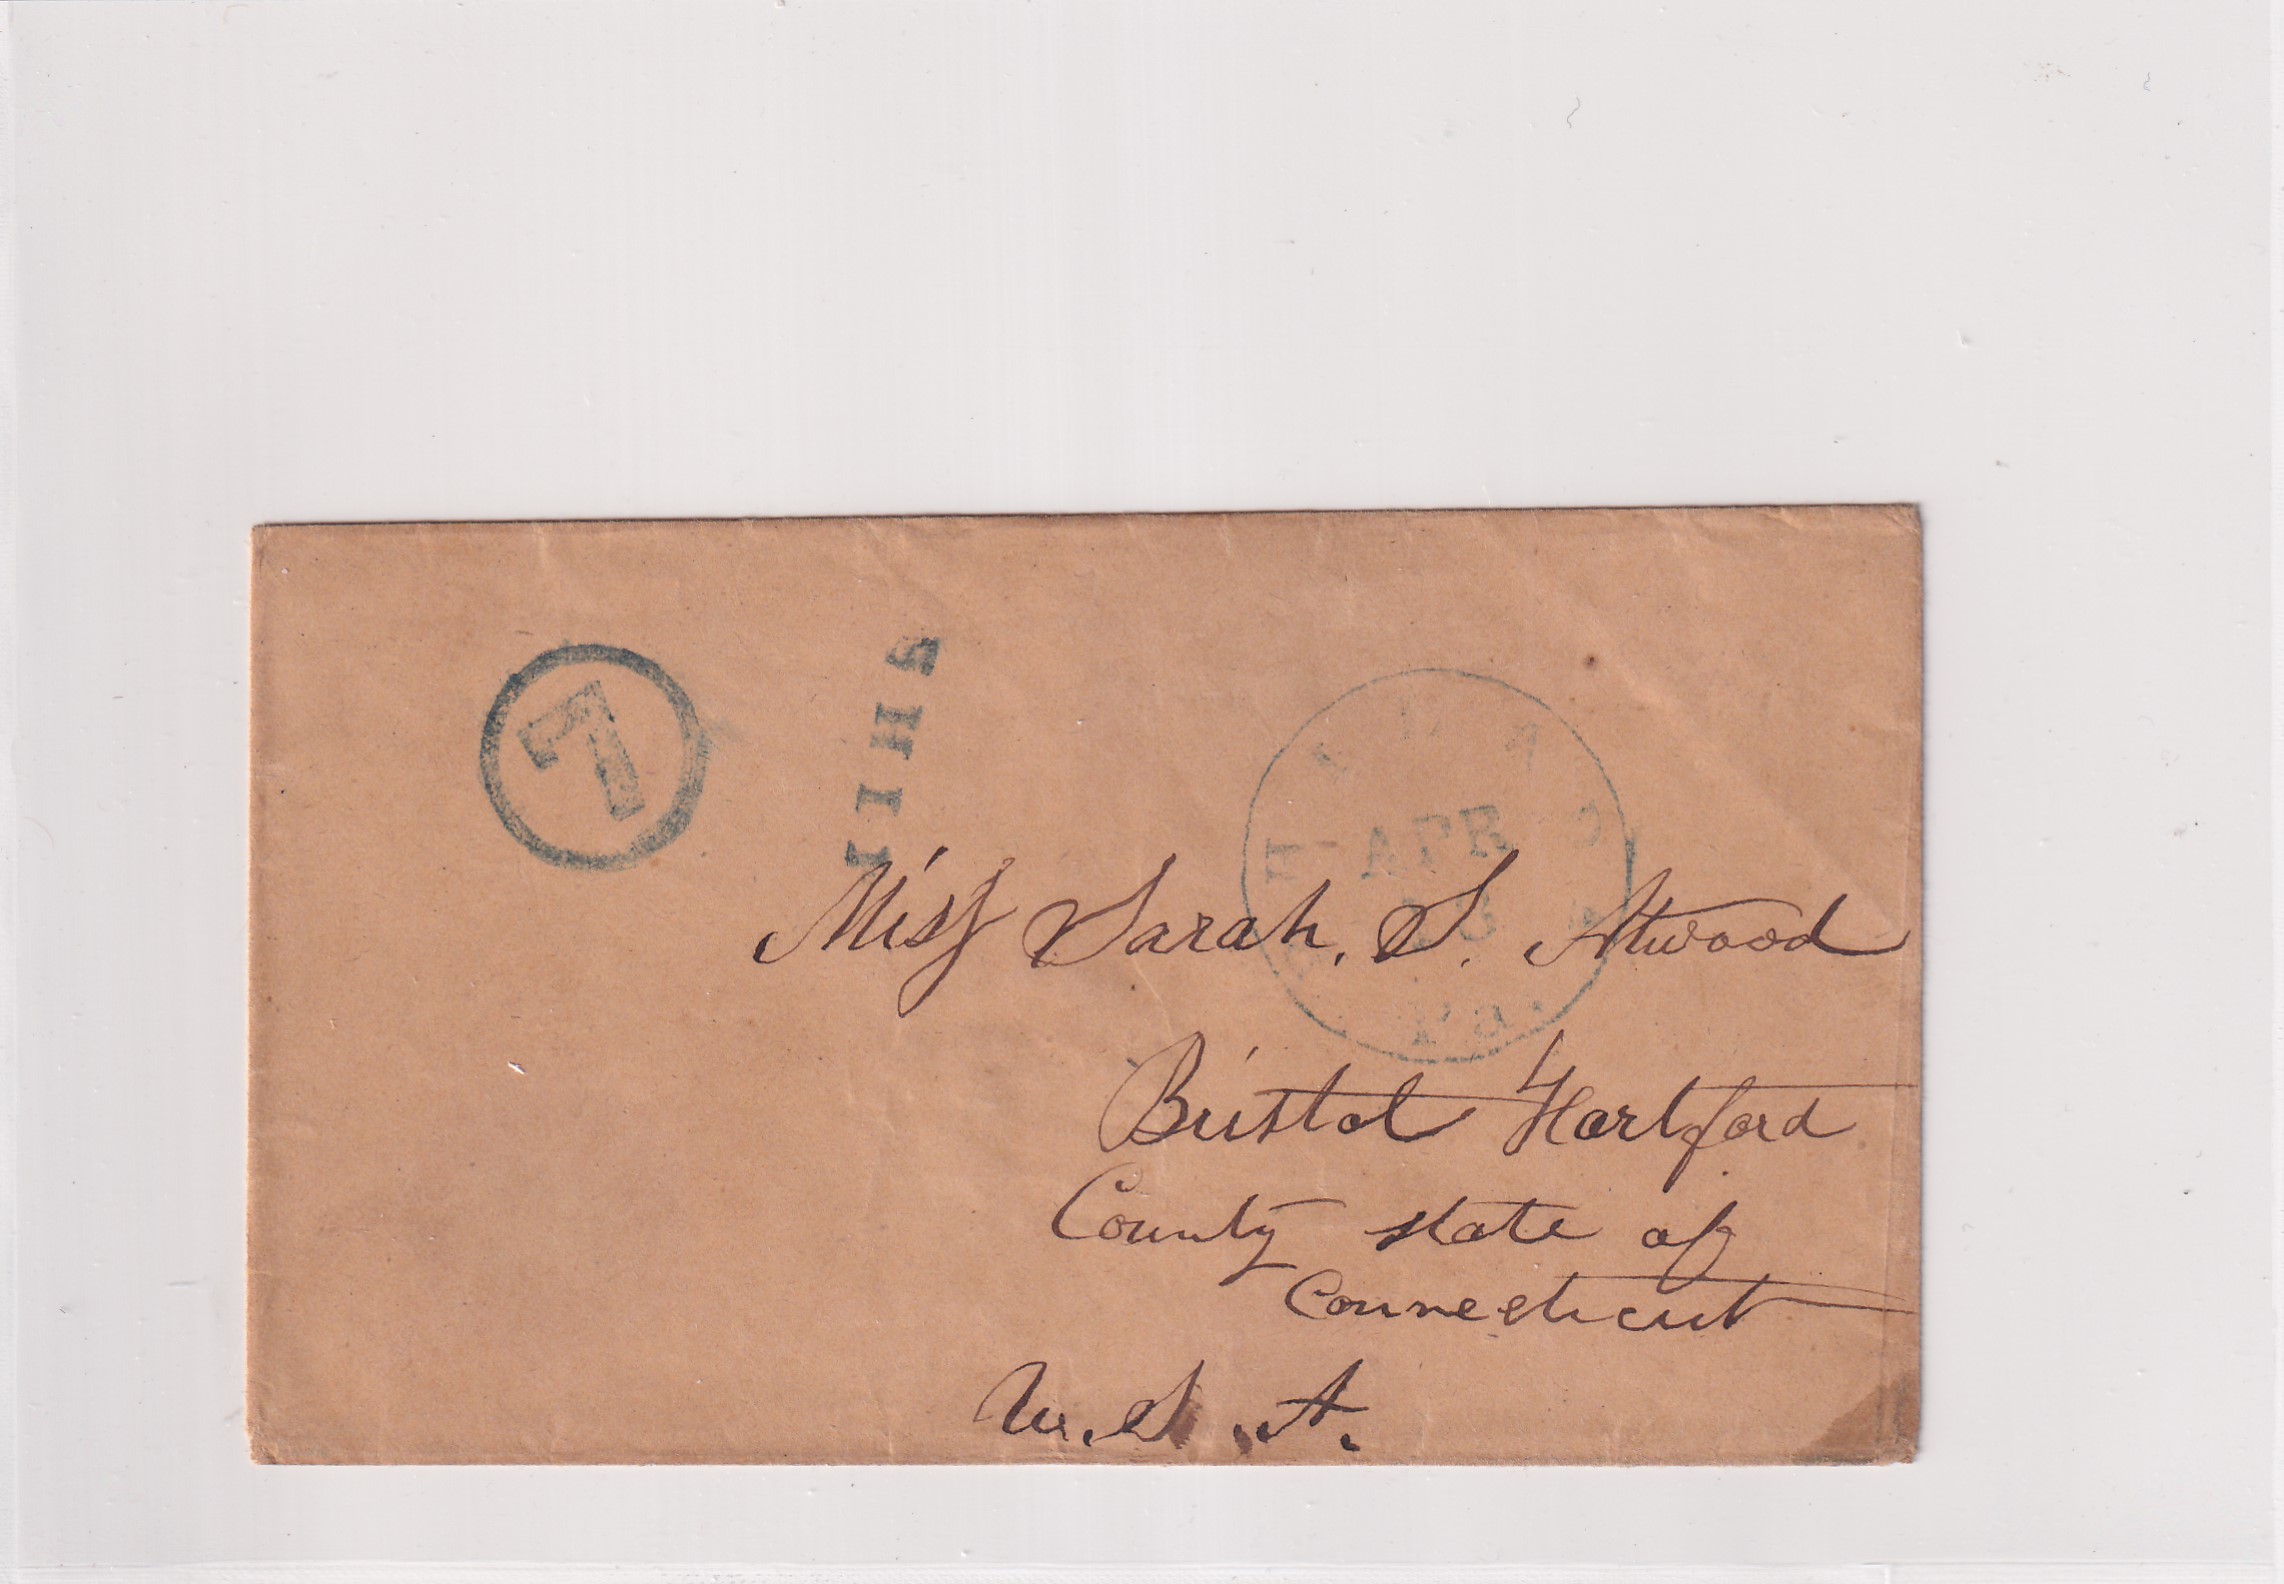 7
SHIP
APR
Pa.
Miss Sarah. S. Atwood
Bristol Hartford
County state of
Connecticut
U.S.A.